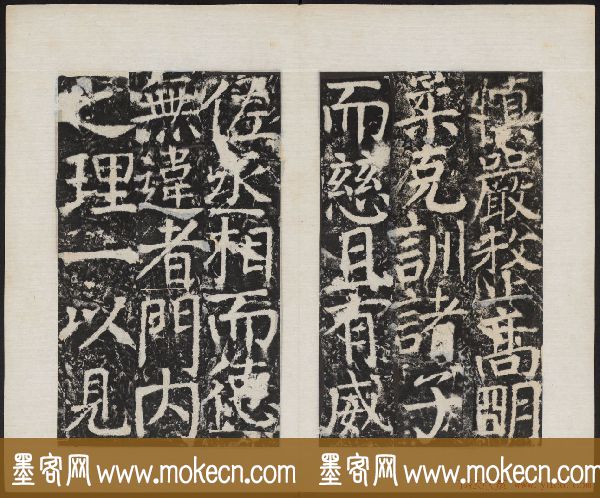 慎嚴高明
柔克訓諸子
而慈且有威
佐丞相而德
無違者門内
之理一以見
墨客网 www.mokecn.com 墨客网 www.mokecn.com